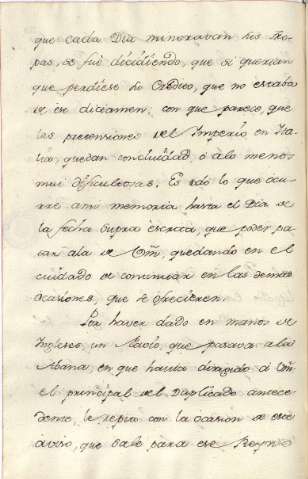 que cada Dia minoravan sus Tro
pas, se fue dicidiendo, que se querian
que perdiese su Credito, que no estaba
de ese dictamen, con que parece, que
las pretensiones del Imperio en Ita
lia, quedan concluidas, o alo menos
mui dificultosas. Es todo lo que ocu
rre ami memoria hasta el Dia de
la fecha supra escrita, que poder par
ticipar de Vm, quedando en el
cuidado de continuar en las demas
ocasiones, que se ofrecieren.
Por haver dado en manos de
Ingleses, un Navio, que pasava ala
Havana, en que havia dirigido a Vm
el principal del Duplicado antece
dente, le repito con la ocasion de este
aviso, que sale para ese Reyno